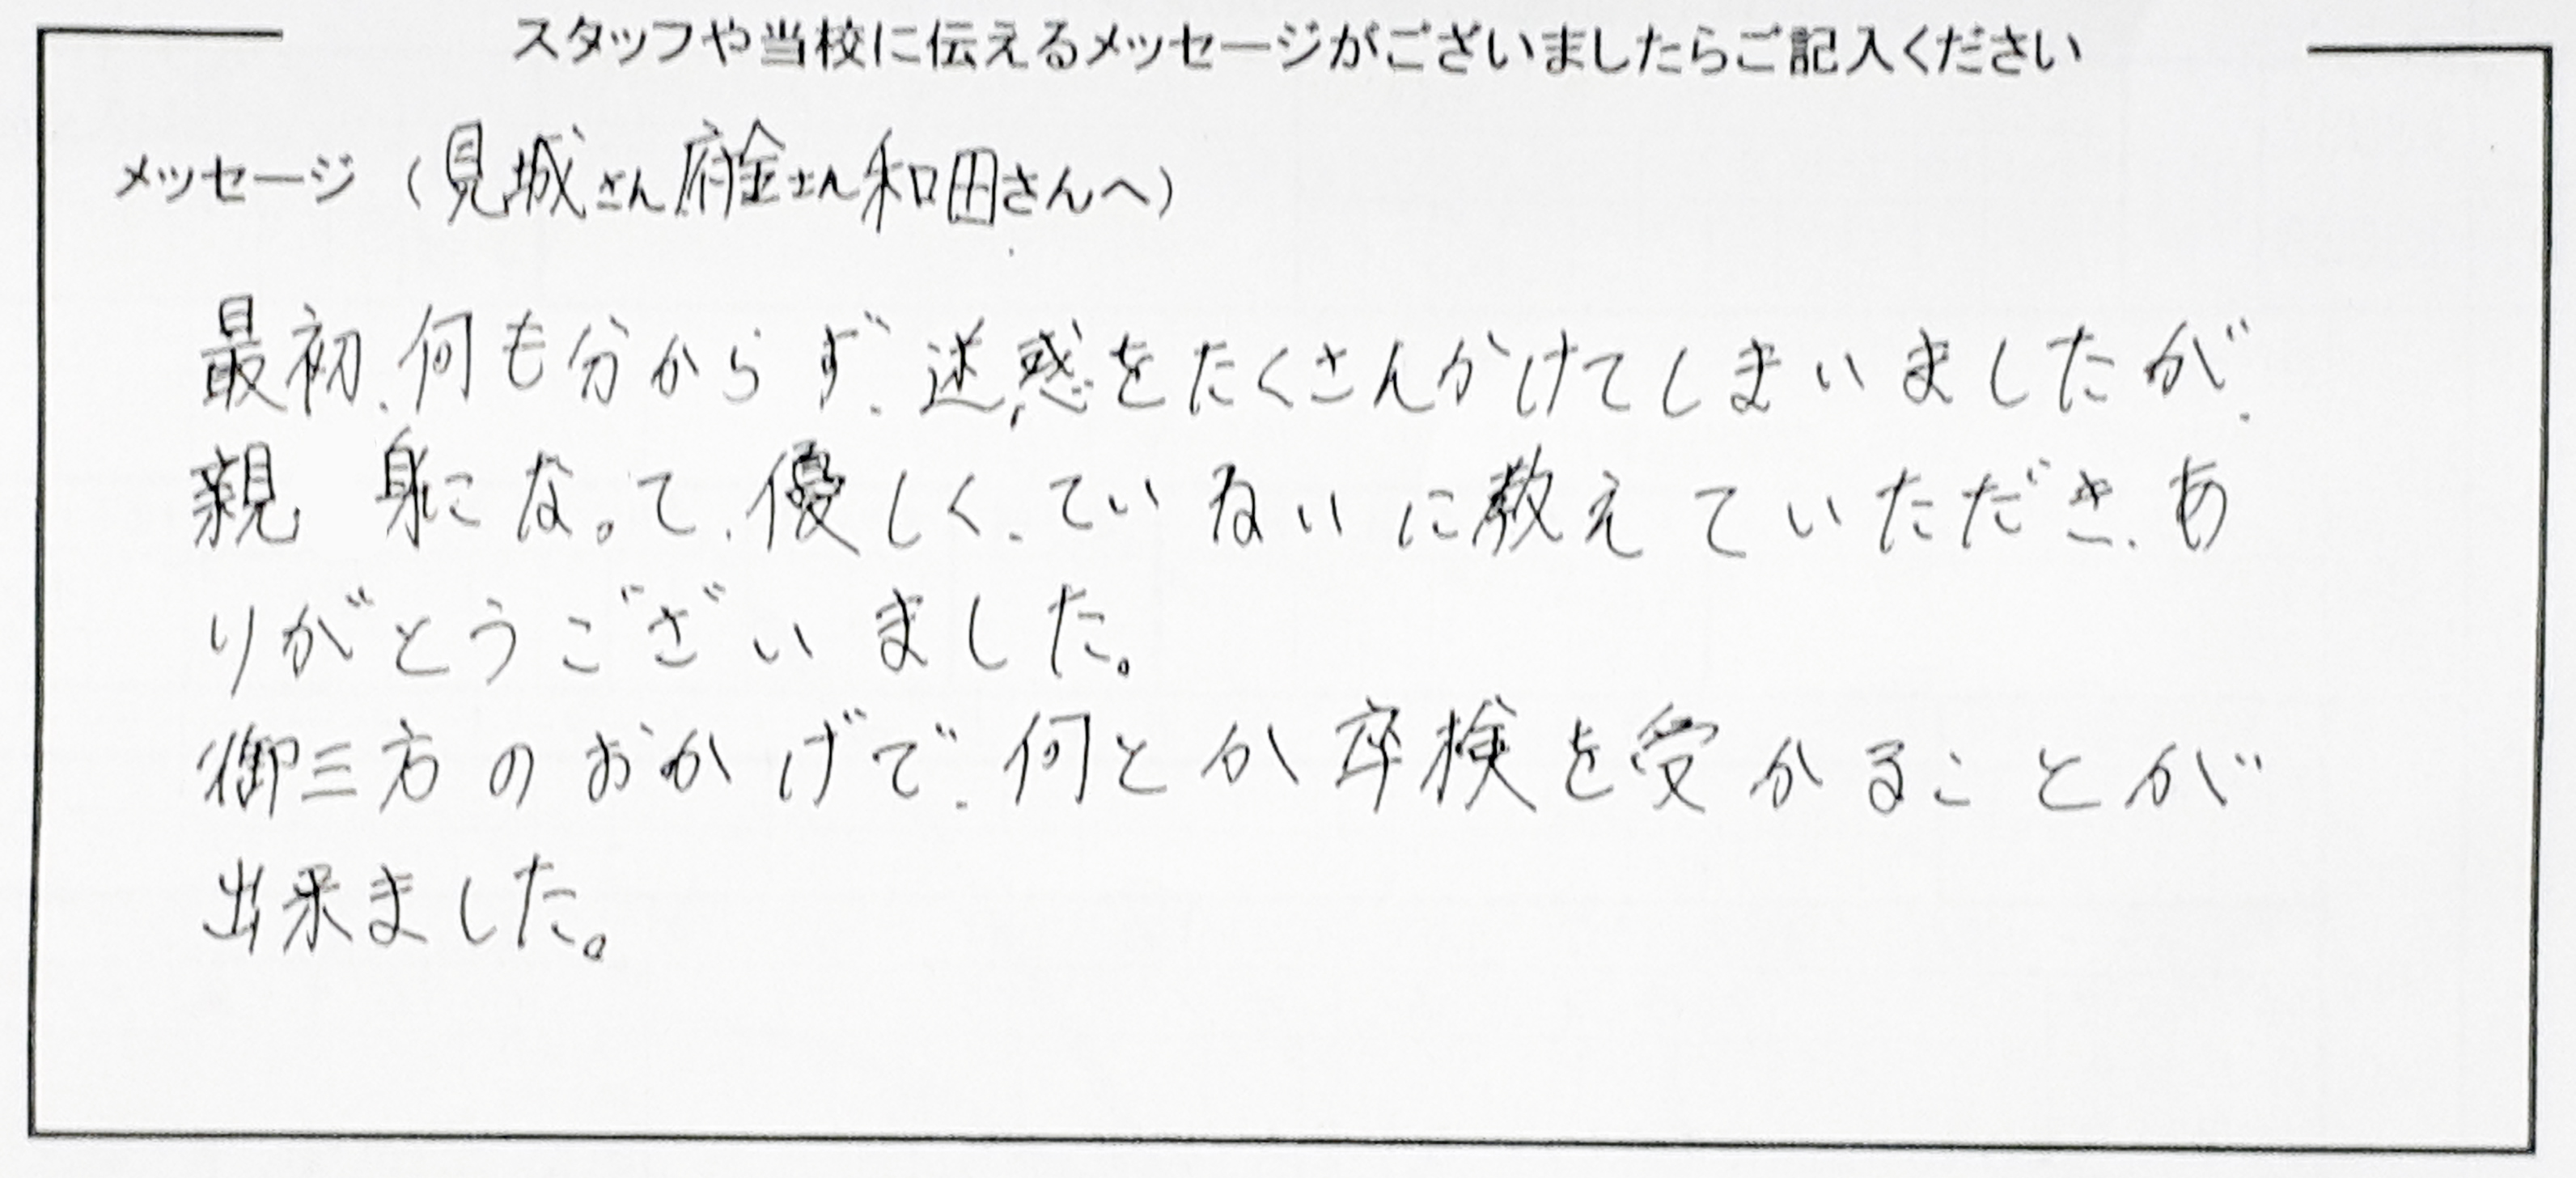 スタッフや当校に伝えるメッセージがございましたらご記入ください
メッセージ（見城さん府金さん和田さんへ）
最初、何も分からず、迷惑をたくさんかけてしまいましたが、
親身になって、優しく、ていねいに教えていただき、あ
りがとうございました。
御三方のおかげで、何とか卒検を受かることが
出来ました。